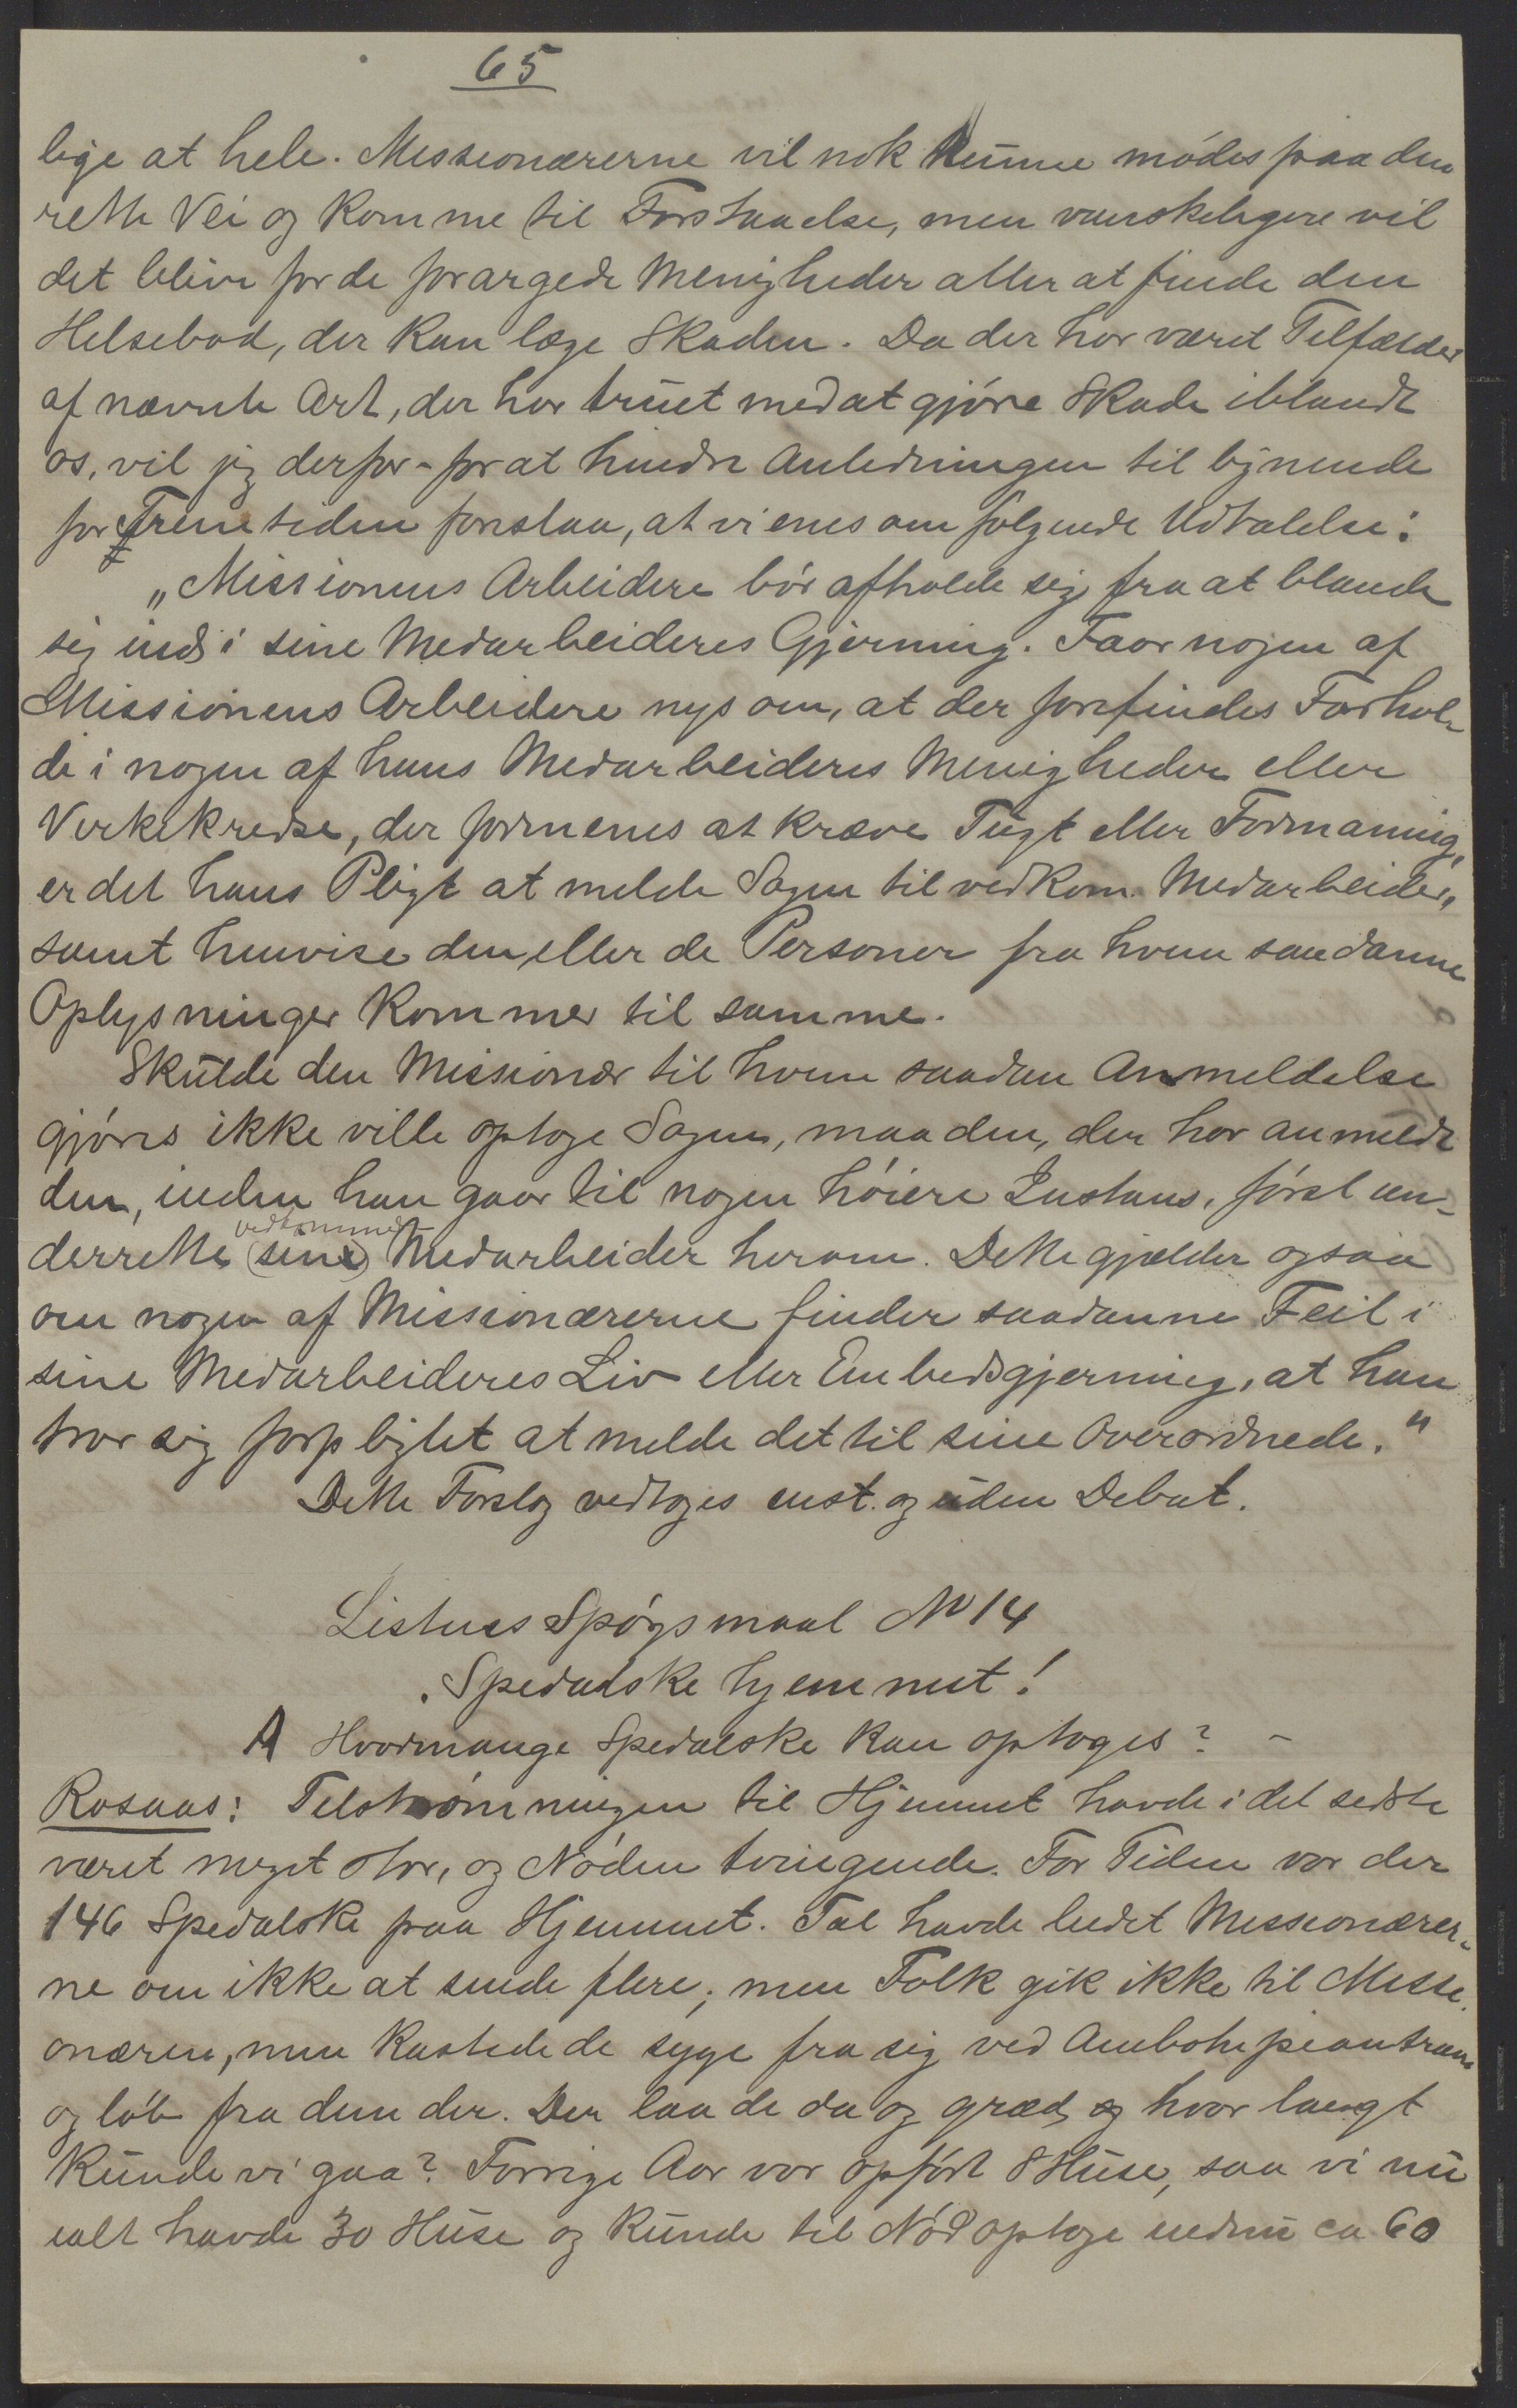 65
lige at hele. Missionærerne vil nok kunne mödes paa den
rette Vei og komme til Forstaaelse, men vanskeligere vil
det blive for de forargede Menigheder atter at finde den
Helsebod, der kan læge Skaden. Da der har været Tilfælder
af nævnte Art, der har truet med at gjöre Skade iblandt
os, vil jeg derfor - for at hindre Anledningen til lignende
for Fremtiden foreslaa, at vi enes om følgende Udtalelse:
"Missionens Arbeidere bör afholde sig fra at blande
sig ind i sine Medarbeideres Gjerning. Faar nogen af
Missionens Arbeidere nys om, at der forefindes Forhol-
de i nogen af hans Medarbeideres Menigheder eller
Virkekredse, der formenes at kræve Tugt eller Formaning,
er det hans Pligt at melde Sagen til vedkom. Medarbeider,
samt henvise den eller de Personer fra hvem saadanne
Oplysninger kommer til samme.
Skulde den Missionær til hvem saadan Anmeldelse
gjöres ikke ville optage Sagen, maa den, der har anmeldt
den, inden han gaar til nogen höiere Instans, först un-
derrette (sine) vedkommende Medarbeider herom. Dette gjælder ogsaa
om nogen af Missionærerne finder saadanne Feil i
sine Medarbeideres Liv eller Embedsgjerning, at han
tror sig forpligtet at melde det til sine Overordnede."
Dette Forslag vedtoges enst. og uden Debat.
Listens Spörgsmaal No 14
Spedalskehjemmet!
A Hvormange Spedalske kan optages? -
Rosaas: Tilströmningen til Hjemmet havde i det sidste
været meget stor, og Nöden tvingende. For Tiden var der
146 Spedalske paa Hjemmet. Tal. havde bedet Missionærer-
ne om ikke at sende flere; men Folk gik ikke til Missi-
onæren, men kastede de syge fra sig ved Ambohipiantrana
og löb fra dem der. Der laa de da og græd, og hvor langt
kunde vi gaa? Forrige Aar var opfört 8 Huse, saa vi nu
ialt havde 30 Huse og kunde til Nöd optage endnu ca 60